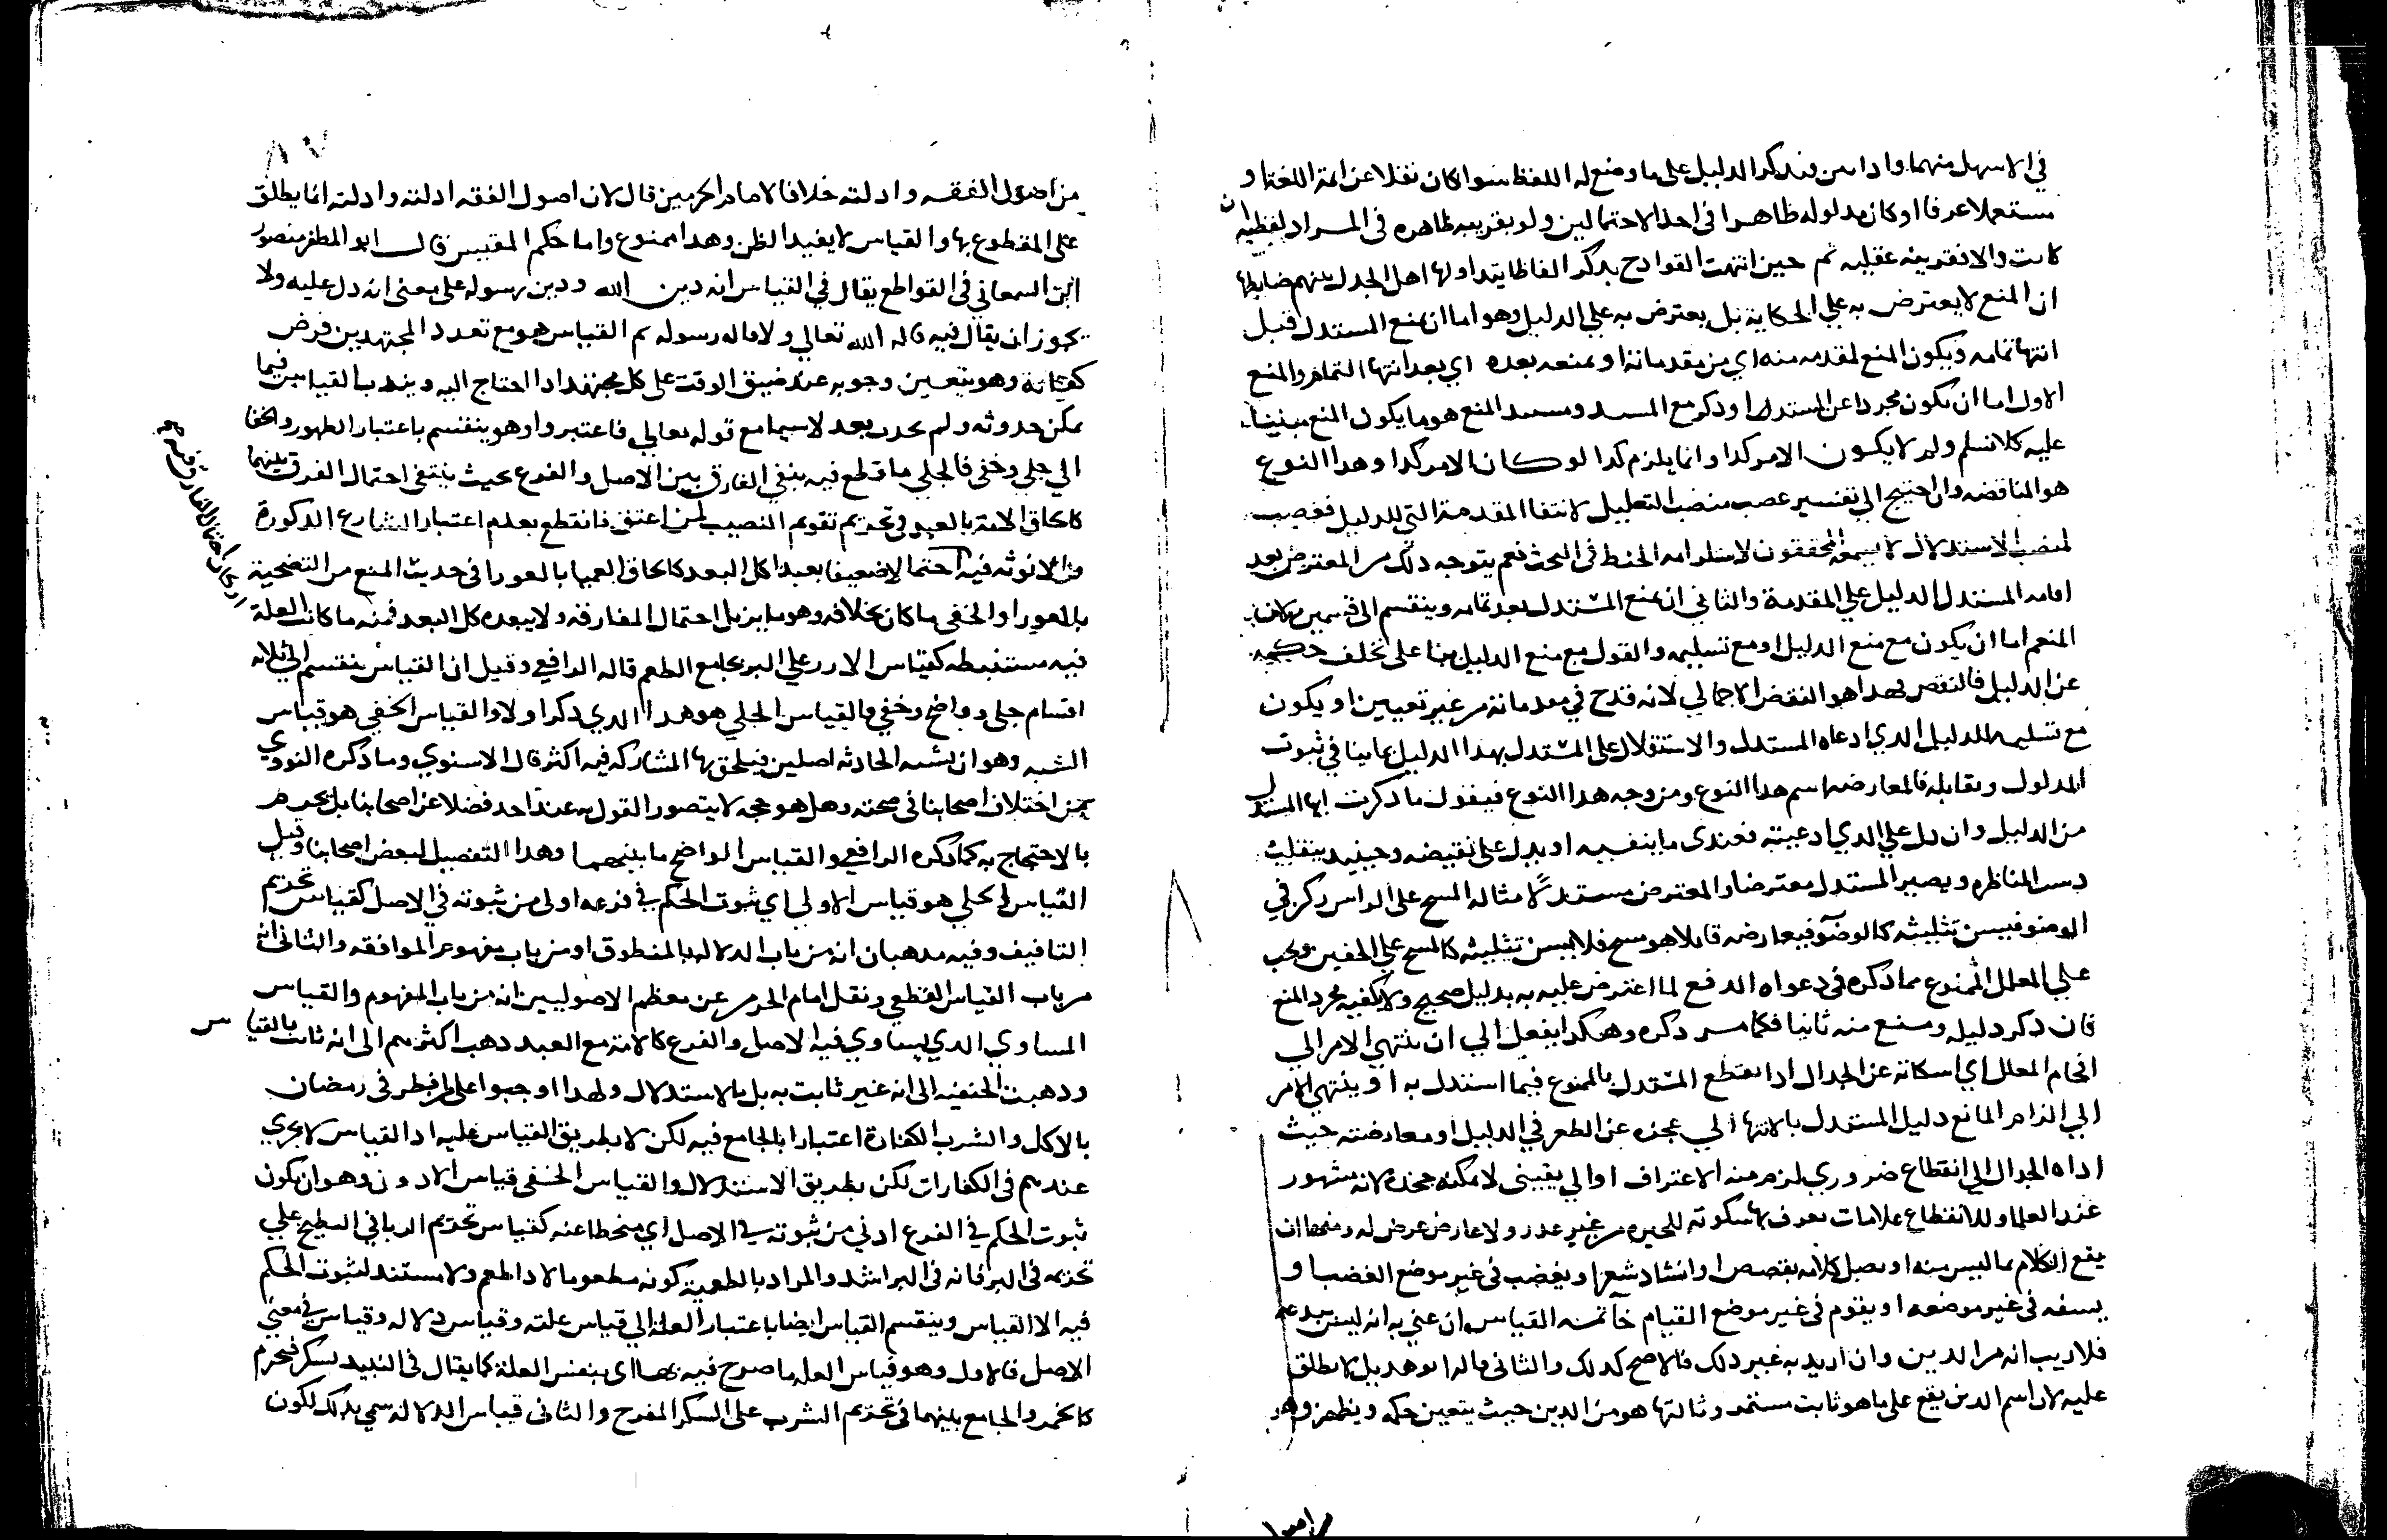 في الاسهل منهما وادا من فيدكر الدليل على ما وضع له اللفظ سوا كان نقلا عن ايمة اللغة او
مستعملا عرفا او كان مدلوله ظاهرا في احد الاحتمالين ولو بقرينه ظاهره في المراد لفظيه ان
كانت والا فقرينه عقليه ثم حين انتهت القوادح بدكر الفاظا يتداولها اهل الجدل بينهم ضابطها
ان المنع لا يعترض به علي الحكاية بل يعترض به علي الدليل وهو اما ان يمنع المستدل قبل
انتها تمامه ويكون المنع لمقدمه منه اي من مقدماته او يمنعه بعده اي بعد انتها التمام والمنع
الاول اما ان يكون مجردا عن المستدل او دكر مع المسند ومسند المنع هو ما يكون المنع مبنيا
عليه كلا نسلم ولم لا يكون الامر كدا وانما يلزم كدا لو كان الامر كدا وهدا النوع
هو المناقضه وان احتج الي تفسير غصب منصب التعليل لانتفا المقدمة التي للدليل فغصب
لمنصب الاستدلال لا يسمعه المحققون لاستلزامه الخبط في البحث نعم يتوجه دلك من المعترض بعد
اقامه المستدل الدليل علي المقدمة والثاني ان يمنع المستدل بعد تمامه وينقسم الي قسمين لان
المنع اما ان يكون مع منع الدليل او مع تسليمه والقول مع منع الدليل بنا على تخلف حكمه
عن الدليل فالنقص فهدا هو النقض الاجمالي لانه قدح في مقدماته من غير تعيين او يكون
مع تسليمه للدليل الدي ادعاه المستدل والاستقلال على المستدل بهدا الدليل بما ينافي ثبوت
المدلول ويقابله فالمعارضه اسم هدا النوع ومن وجه هدا النوع فيقول ما دكرت ايها المستدل
من الدليل وان دل علي الدي ادعيته فعندى ما ينفيه او يدل على نقيضه وحينيد ينقلب
دست المناظره ويصير المستدل معترضا والمعترض مستدلا مثاله المسح على الراس ركن في
الوضو فيسن تثليثه كالوضو فيعارضه قايلا هو مسح فلا يسن تثليثه كالمسح علي الخفين ويجب
علي المعلل الممنوع مما دكره في دعواه الدفع لما اعترض عليه به بدليل صحيح ولا يكفيه مجرد المنع
فان دكر دليله ومنع منه ثانيا فكما مر دكره وهكدا يفعل الي ان ينتهي الامر الي
افحام المعلل اي اسكاته عن الجدال ادا انقطع المستدل بالممنوع فيما استدل به او ينتهي الامر
الي الزام المانع دليل المستدل بالانتها الي عجزه عن الطعن في الدليل او معارضته حيث
اداه الجدال الي انقطاع ضروري لزم منه الاعتراف او الي يقيني لا يمكنه جحده لانه مشهور
عند العلما وللانقطاع علامات يعرف بها سكوته للحيره من غير عدر ولا عارض عرض له ومنها ان
يقع الكلام بما ليس منه او يصل كلامه بقصص او انشاد شعر او يغضب في غير موضع الغضب او
يسفه في غير موضعه او يقوم في غير موضع القيام خاتمه القياس ان عني به انه ليس ببدعه
فلا ريب انه من الدين وان اريد به غير دلك فالاصح كدلك والثاني قاله ابو هديل لا يطلق
عليه لان اسم الدين يقع على ما هو ثابت مستمر وثالثها هو من الدين حيث يتعين حكمه ويظهر وهو
من اصول الفقه وادلته خلافا لامام الحرمين قال لان اصول الفقه ادلته وادلته انما يطلق
على المقطوع بها والقياس لا يفيد الا الظن وهدا ممنوع واما حكم المقيس قال ابو المظفر منصور
ابن السمعاني في القواطع يقال في القياس انه دين الله ودين رسوله على معنى انه دل عليه ولا
يجوز ان يقال فيه قاله الله تعالي ولا قاله رسوله ثم القياس هو مع تعدد المجتهدين فرض
كفاية وهو يتعين وجوبه عند ضيق الوقت على كل مجتهد ادا احتاج اليه ويندب القياس فيما
يمكن حدوثه ولم يحدث بعد لا سيما مع قوله تعالي فاعتبروا وهو ينقسم باعتبار الظهور والخفا
الي جلي وخفي فالجلي ما قطع فيه بنفي الفارق بين الاصل والفرع بحيث ينتفي احتمال الفرق بينهما
كالحاق الامة بالعبد في تحريم تقويم النصيب لمن اعتق فانقطع بعدم اعتبار الشارع الدكورة
والانوثه فيه احتمالا ضعيفا بعيدا كل البعد كالحاق العميا بالعورا في حديث المنع من التضحية
بالعورا والخفي ما كان بخلافه وهو ما يزيل احتمال المفارقه ولا يبعده كل البعد فمنه ما كانت العلة
فيه مستنبطه كقياس الارز علي البر بجامع الطعم قاله الرافعي وقيل ان القياس ينقسم الي ثلاثه
اقسام جلي وواضح وخفي فالقياس الجلي هو هدا الدي دكر اولا والقياس الخفي هو قياس
الشبه وهو ان تشبه الحادثه اصلين فيلحق بها المشاركه فيه اكثر قال الاسنوي وما دكره النووي
من اختلاف اصحابنا في صحته وهل هو حجه لا يتصور القول به عند احد فضلا عن اصحابنا بل يحرم
بالاحتجاج به كما دكره الرافعي والقياس الواضح ما بينهما وهدا التفصيل لبعض اصحابنا وقيل
القياس الجلي هو قياس الاولي اي ثبوت الحكم في فرعه اولى من ثبوته في الاصل كقياس تحريم
التافيف وفيه مدهبان انه من باب الدلاله بالمنطوق او من باب مفهوم الموافقه والثاني انه
من باب القياس القطعي ونقل امام الحرمين عن معظم الاصوليين انه من باب المفهوم والقياس
المساوي الدي يساوي فيه الاصل والفرع كالامة مع العبد دهب اكثرهم الى انه ثابت بالقياس
ودهبت الحنفيه الى انه غير ثابت به بل بالاستدلال ولهدا اوجبوا على المفطر في رمضان
بالاكل والشرب الكفارة اعتبارا بالجامع فيه لكن لا بطريق القياس عليه اد القياس لا يجري
عندهم في الكفارات لكن بطريق الاستدلال والقياس الخفي قياس الادون وهو ان يكون
ثبوت الحكم في الفرع ادني من ثبوته في الاصل اي منحطا عنه كقياس تحريم الربا في البطيخ علي
تحريمه في البر فانه في البر اشد والمراد بالطعميه كونه مطعوما لا دا طعم ولا مستند لثبوت الحكم
فيه الا القياس وينقسم القياس ايضا باعتبار العلة الي قياس علته وقياس دلاله وقياس في معني
الاصل فالاول وهو قياس العله ما صرح فيه بها اي بنفس العلة كما يقال في النبيد يسكر فيحرم
كالخمر والجامع بينهما في تحريم الشرب على السكر المفرح والثاني قياس الدلاله سمي بدلك لكون